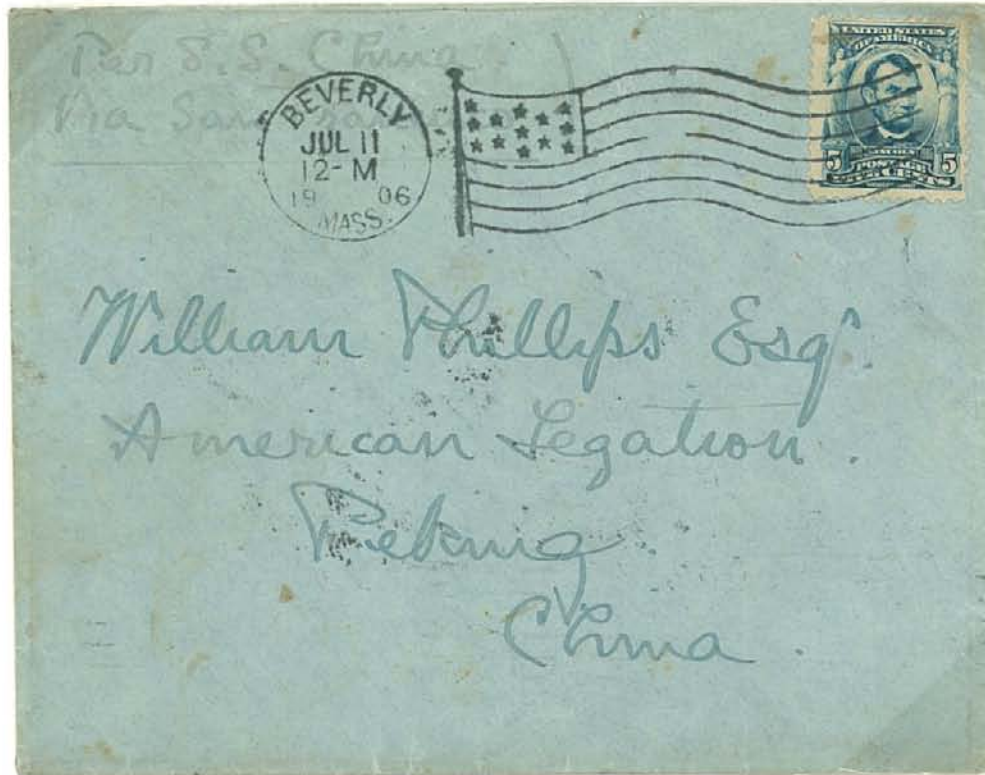 Per S.S. China
Via San
BEVERLY
JUL 11
12-M
1906
MASS.
UNITED STATES
OF AMERICA
5 5
POSTAGE
William Phillips Esqr.
American Legation.
Peking
China.